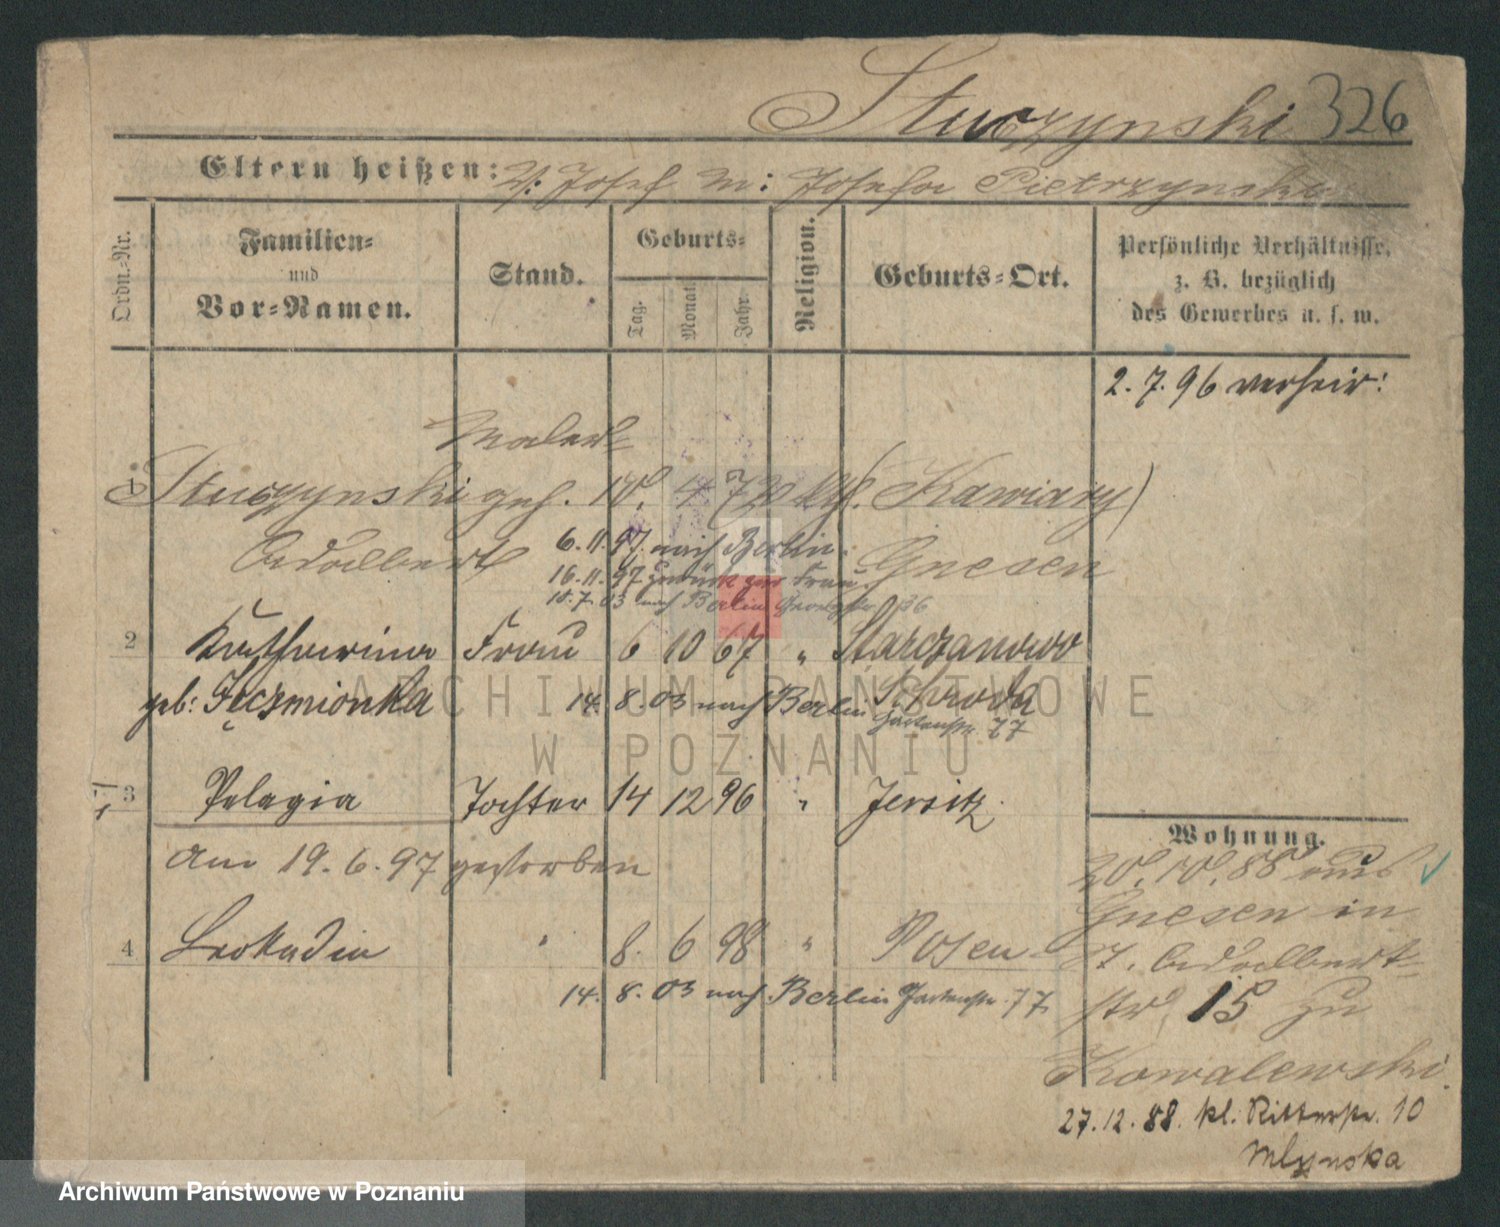 Stuczynski 326
Eltern heißen: V: Josef M: Josefa Pietrzynska
Ordn.-Nr.
Familien-
und
Vor-Namen.
Stand.
Geburts-
Tag.
Monat.
Jahr.
Religion.
Geburts-Ort.
Persönliche Verhältnisse,
z. B. bezüglich
des Gewerbes u. s. w.
2. 7. 96 verheir:
Maler
1 Stuczynski geh. 10. 4 72 kth. Kawiary
Adalbert 6.11.97 nach Berlin. Gnesen
16.11.97 zurück zur Frau
18.7.03 nach Berlin 36
2 Katharina Frau 6 10 67 " Starczanowo
geb: Jęczmionka 14. 8. 03 nach Berlin Schroda
Gartenstr. 77
3 Pelagia Tochter 14 12 96 " Jersitz.
Am 19. 6. 97 gestorben
4 Leokadia " 8. 6 98 " Posen
14. 8. 03 nach Berlin Gartenstr. 77
Wohnung.
20. 10. 88 aus
Gnesen in
St. Adalbert-
str 15 zu
Kowalewski.
27.12.88. kl. Ritterstr. 10
Mlynska
ARCHIWUM PAŃSTWOWE
W POZNANIU
Archiwum Państwowe w Poznaniu